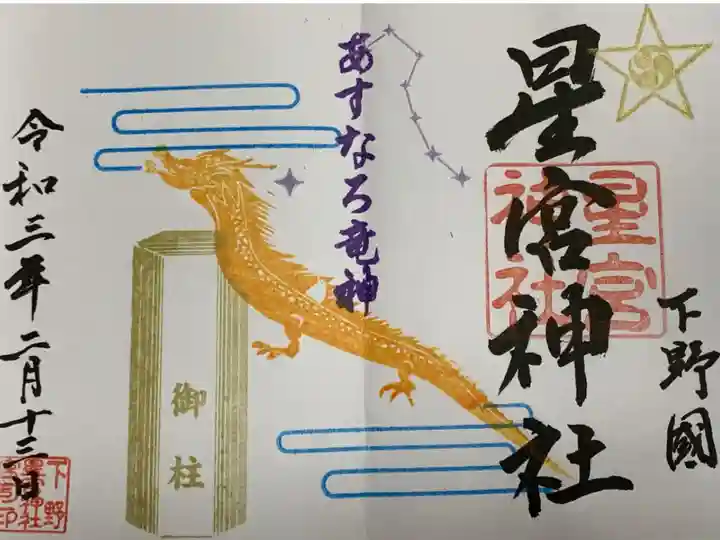 下野國
星宮神社
星宮
神社
あすなろ竜神
御柱
令和三年二月十三日
下野